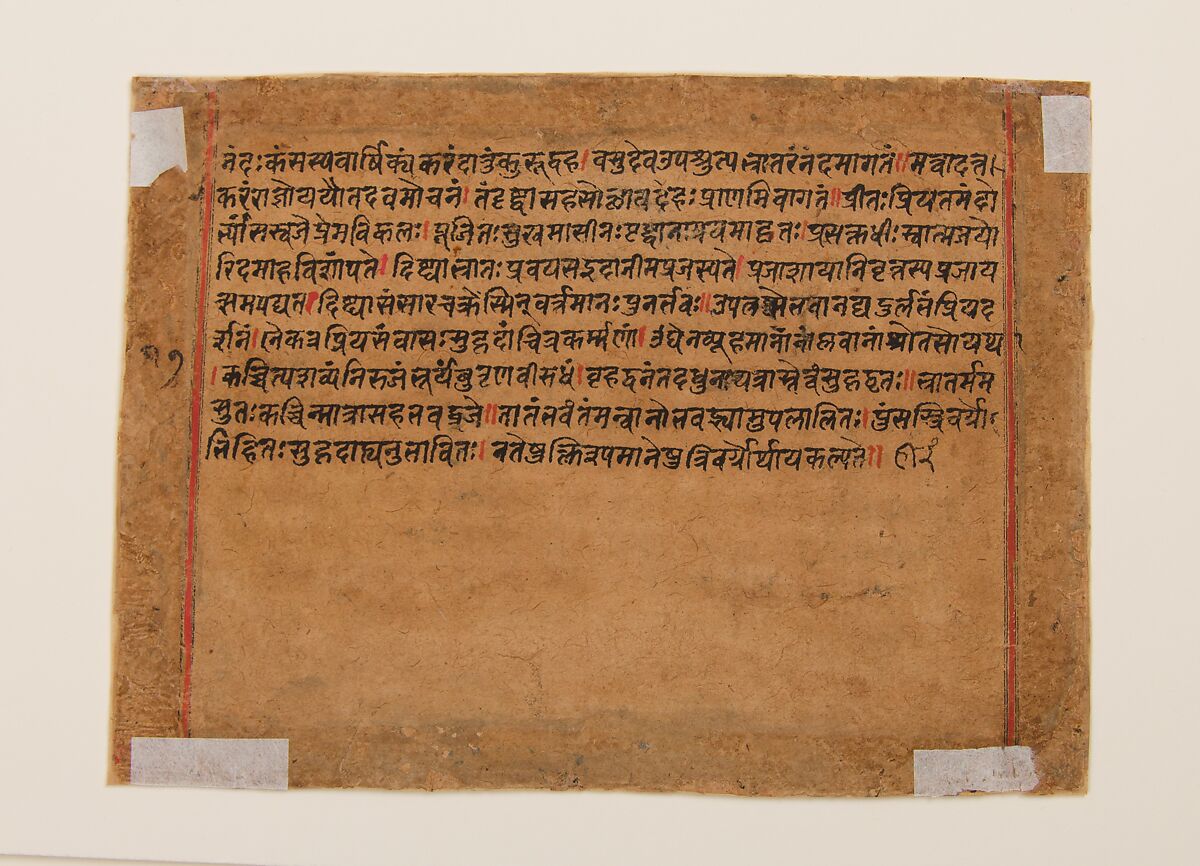 नंदः कंसस्य वार्षिक्यं करं दातुं कुरूद्वह। वसुदेव उपश्रुत्य भ्रातरं नंदमागतं॥ मत्वा दत्त
करं राज्ञे ययौ तदवमोचनं। तं दृष्ट्वा सहसोत्थाय देहः प्राणमिवागतं॥ प्रीतः प्रियतमं दो
र्भ्यां सस्वजे प्रेमविकलः। पूजितः सुखमासीनः पृष्ट्वानामयमादृतः। प्रसक्तधीः स्वात्मजयो
रिदमाह विशांपते। दिष्ट्या भ्रातः प्रवयस इदानीमप्रजस्य ते। प्रजाशाया निवृत्तस्य प्रजा य
त्समपद्यत। दिष्ट्या संसारचक्रेस्मिन् वर्त्तमानः पुनर्भवः॥ उपलब्धो भवानद्य दुर्लभं प्रियद
र्शनं। नैकत्र प्रियसंवासः सुहृदां चित्रकर्म्मणां। उघेन व्यूहमानानां प्लवानां श्रोतसो यथा
। कच्चित्पशव्यं निरुजं भूर्यंबुतृणवीरुधं। वृहद्वनं तदधुना यत्रास्से त्वं सुहृद्वृतः॥ भ्रातर्मम
सुतः कच्चिन्मात्रा सह भवद्व्रजे॥ तातं भवंतं मन्वानो भवद्भ्यामुपलालितः। पुंसस्त्रिवर्गो
विहितः सुहृदो ह्यनुभावितः। न तेषु क्लिश्यमानेषु त्रिवर्गोर्थाय कल्पते॥
१७